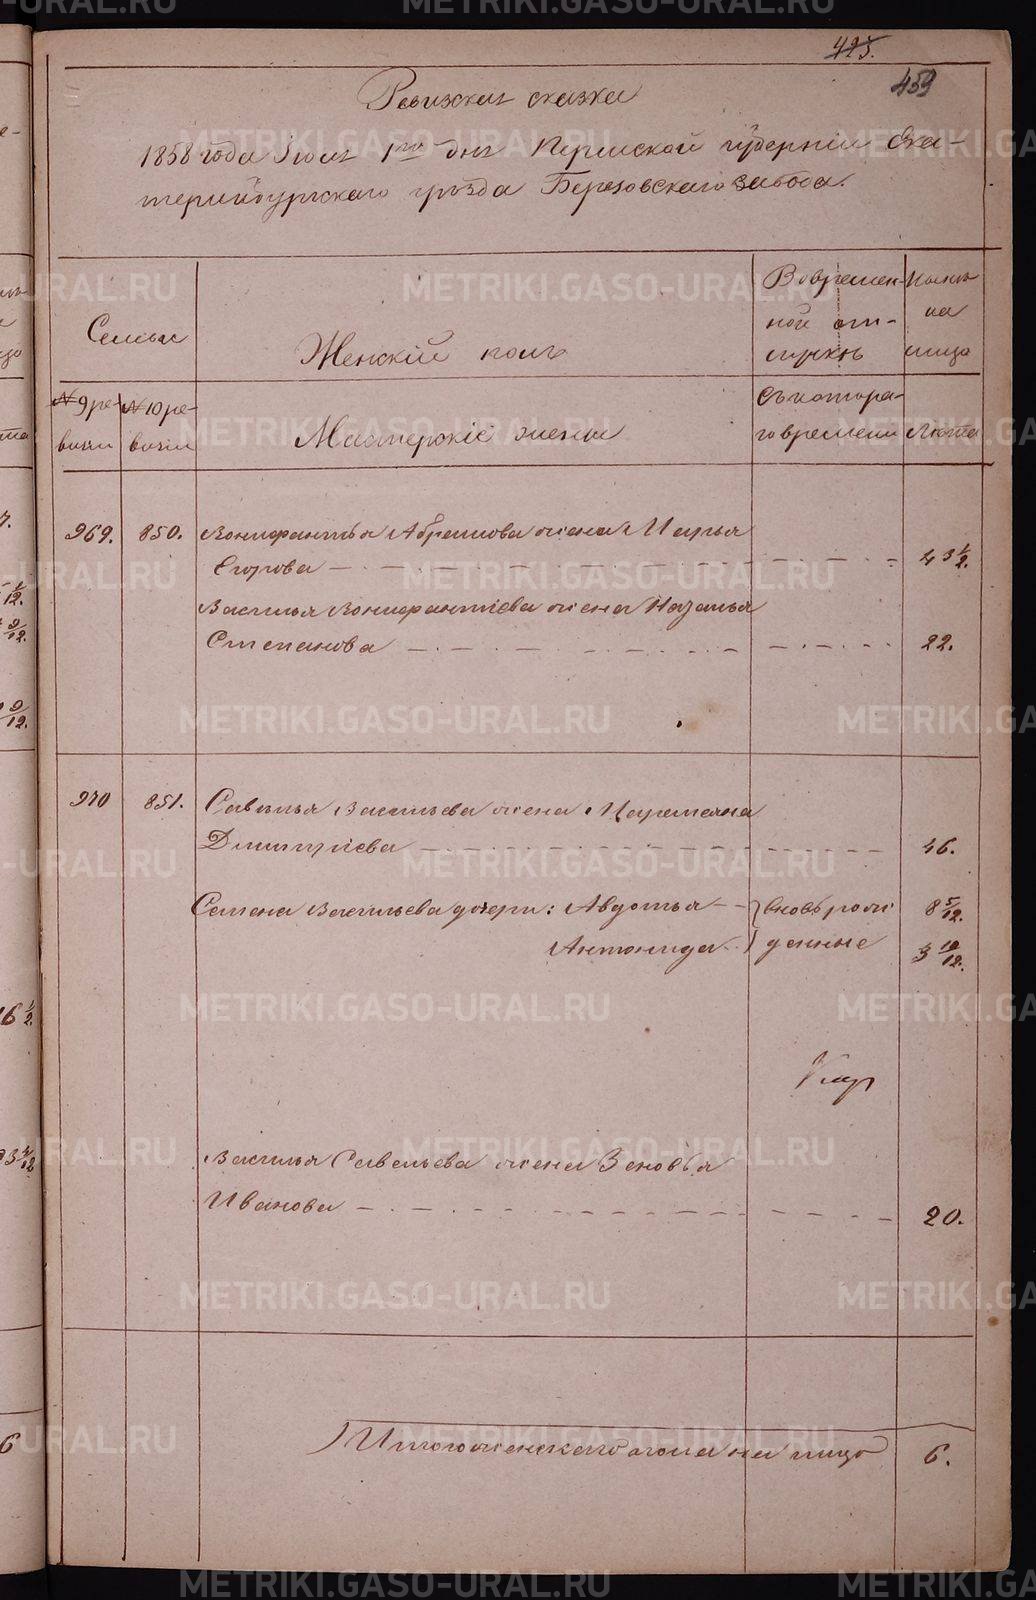 425.
459
Ревизская сказка
1858 года Іюля 1го дня Пермской губерніи Ека-
теринбургскаго уѣзда Березовскаго завода.
Семьи
Женскій полъ
Во времен-
ной от-
лучкѣ
Налич-
на
лицо
№ 9 ре-
визіи
№ 10 ре-
визіи
Мастерскіе жены
Съ котора-
го времени
Лѣта
969. 850. Вонифантья Абрамова жена Марья
Егорова 43 1/2.
Василья Вонифантіева жена Наталья
Степанова 22.
970 851. Савелья Васильева жена Маремьяна
Дмитріева 46.
Семена Васильева дочери: Авдотья вновь рож 8 5/12.
Антонида денные 3 10/12.
Василья Савельева жена Зеновья
Иванова 20.
Итого женскаго пола на лицо 6.
METRIKI.GASO-URAL.RU